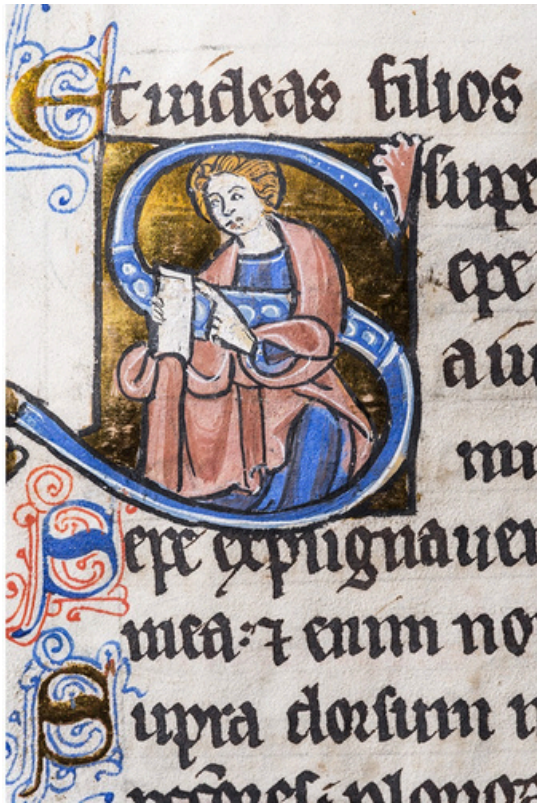 Et uideas filios
supe
Sepe
au
nu
Sepe expugnauer
mea: ⁊ enim no
Supra dorsum